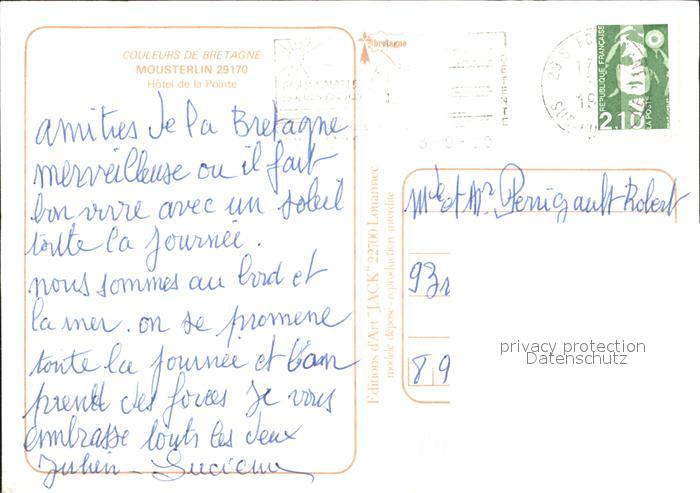 COULEURS DE BRETAGNE
MOUSTERLIN 29170
Hôtel de la Pointe
amitiés de la Bretagne
merveilleuse ou il fait
bon vivre avec un soleil
toute la journée.
nous sommes au bord et
la mer. on se promene
toute la journée et l'on
prend des forces Je vous
embrasse touts les deux
Julien - Lucienne
bretagne
Editions d'Art "JACK" 22700 Louannec
modèle déposé - reproduction interdite
REPUBLIQUE FRANÇAISE
2.10
LA POSTE
Mde et Mr Perrigault Robert
93
89
privacy protection
Datenschutz